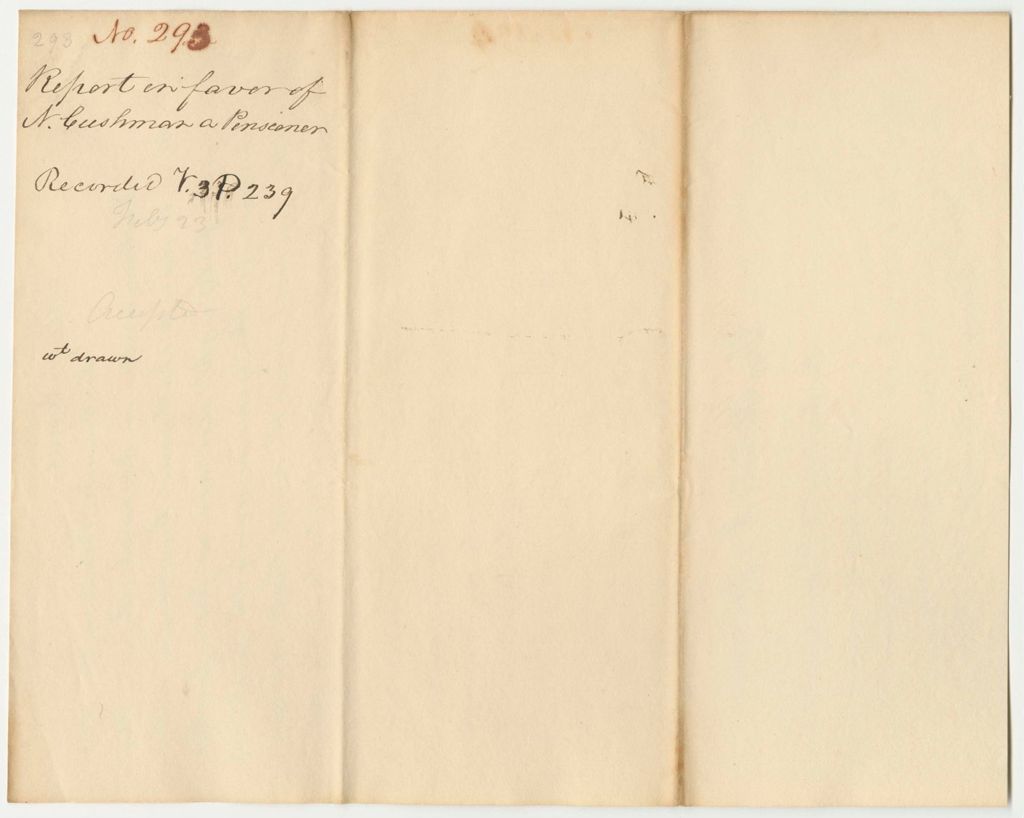 293 No. 293
Report in favor of
N. Cushman a Pensioner
Recorded V. 3 P. 239
Feby 23
Accepted
wt drawn